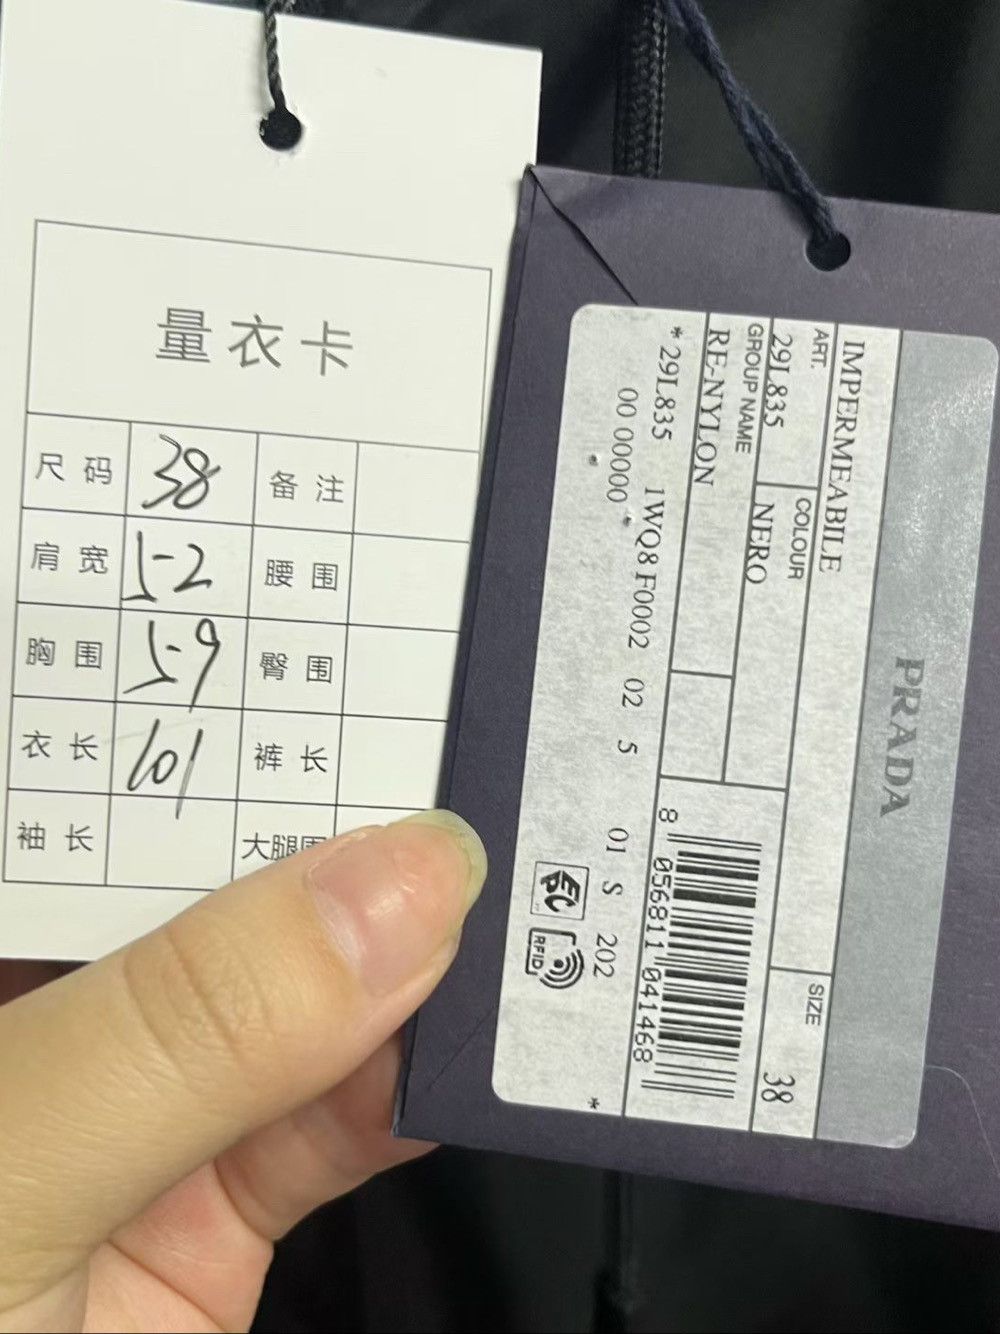 量衣卡
尺码 38 备注
肩宽 52 腰围
胸围 59 臀围
衣长 101 裤长
袖长 大腿围
PRADA
IMPERMEABILE
ART. COLOUR SIZE
29L835 NERO 38
GROUP NAME
RE-NYLON
8 056811 041468
* 29L835 1WQ8 F0002 02 5 01 S 202 *
00 00000
EPC
RFID